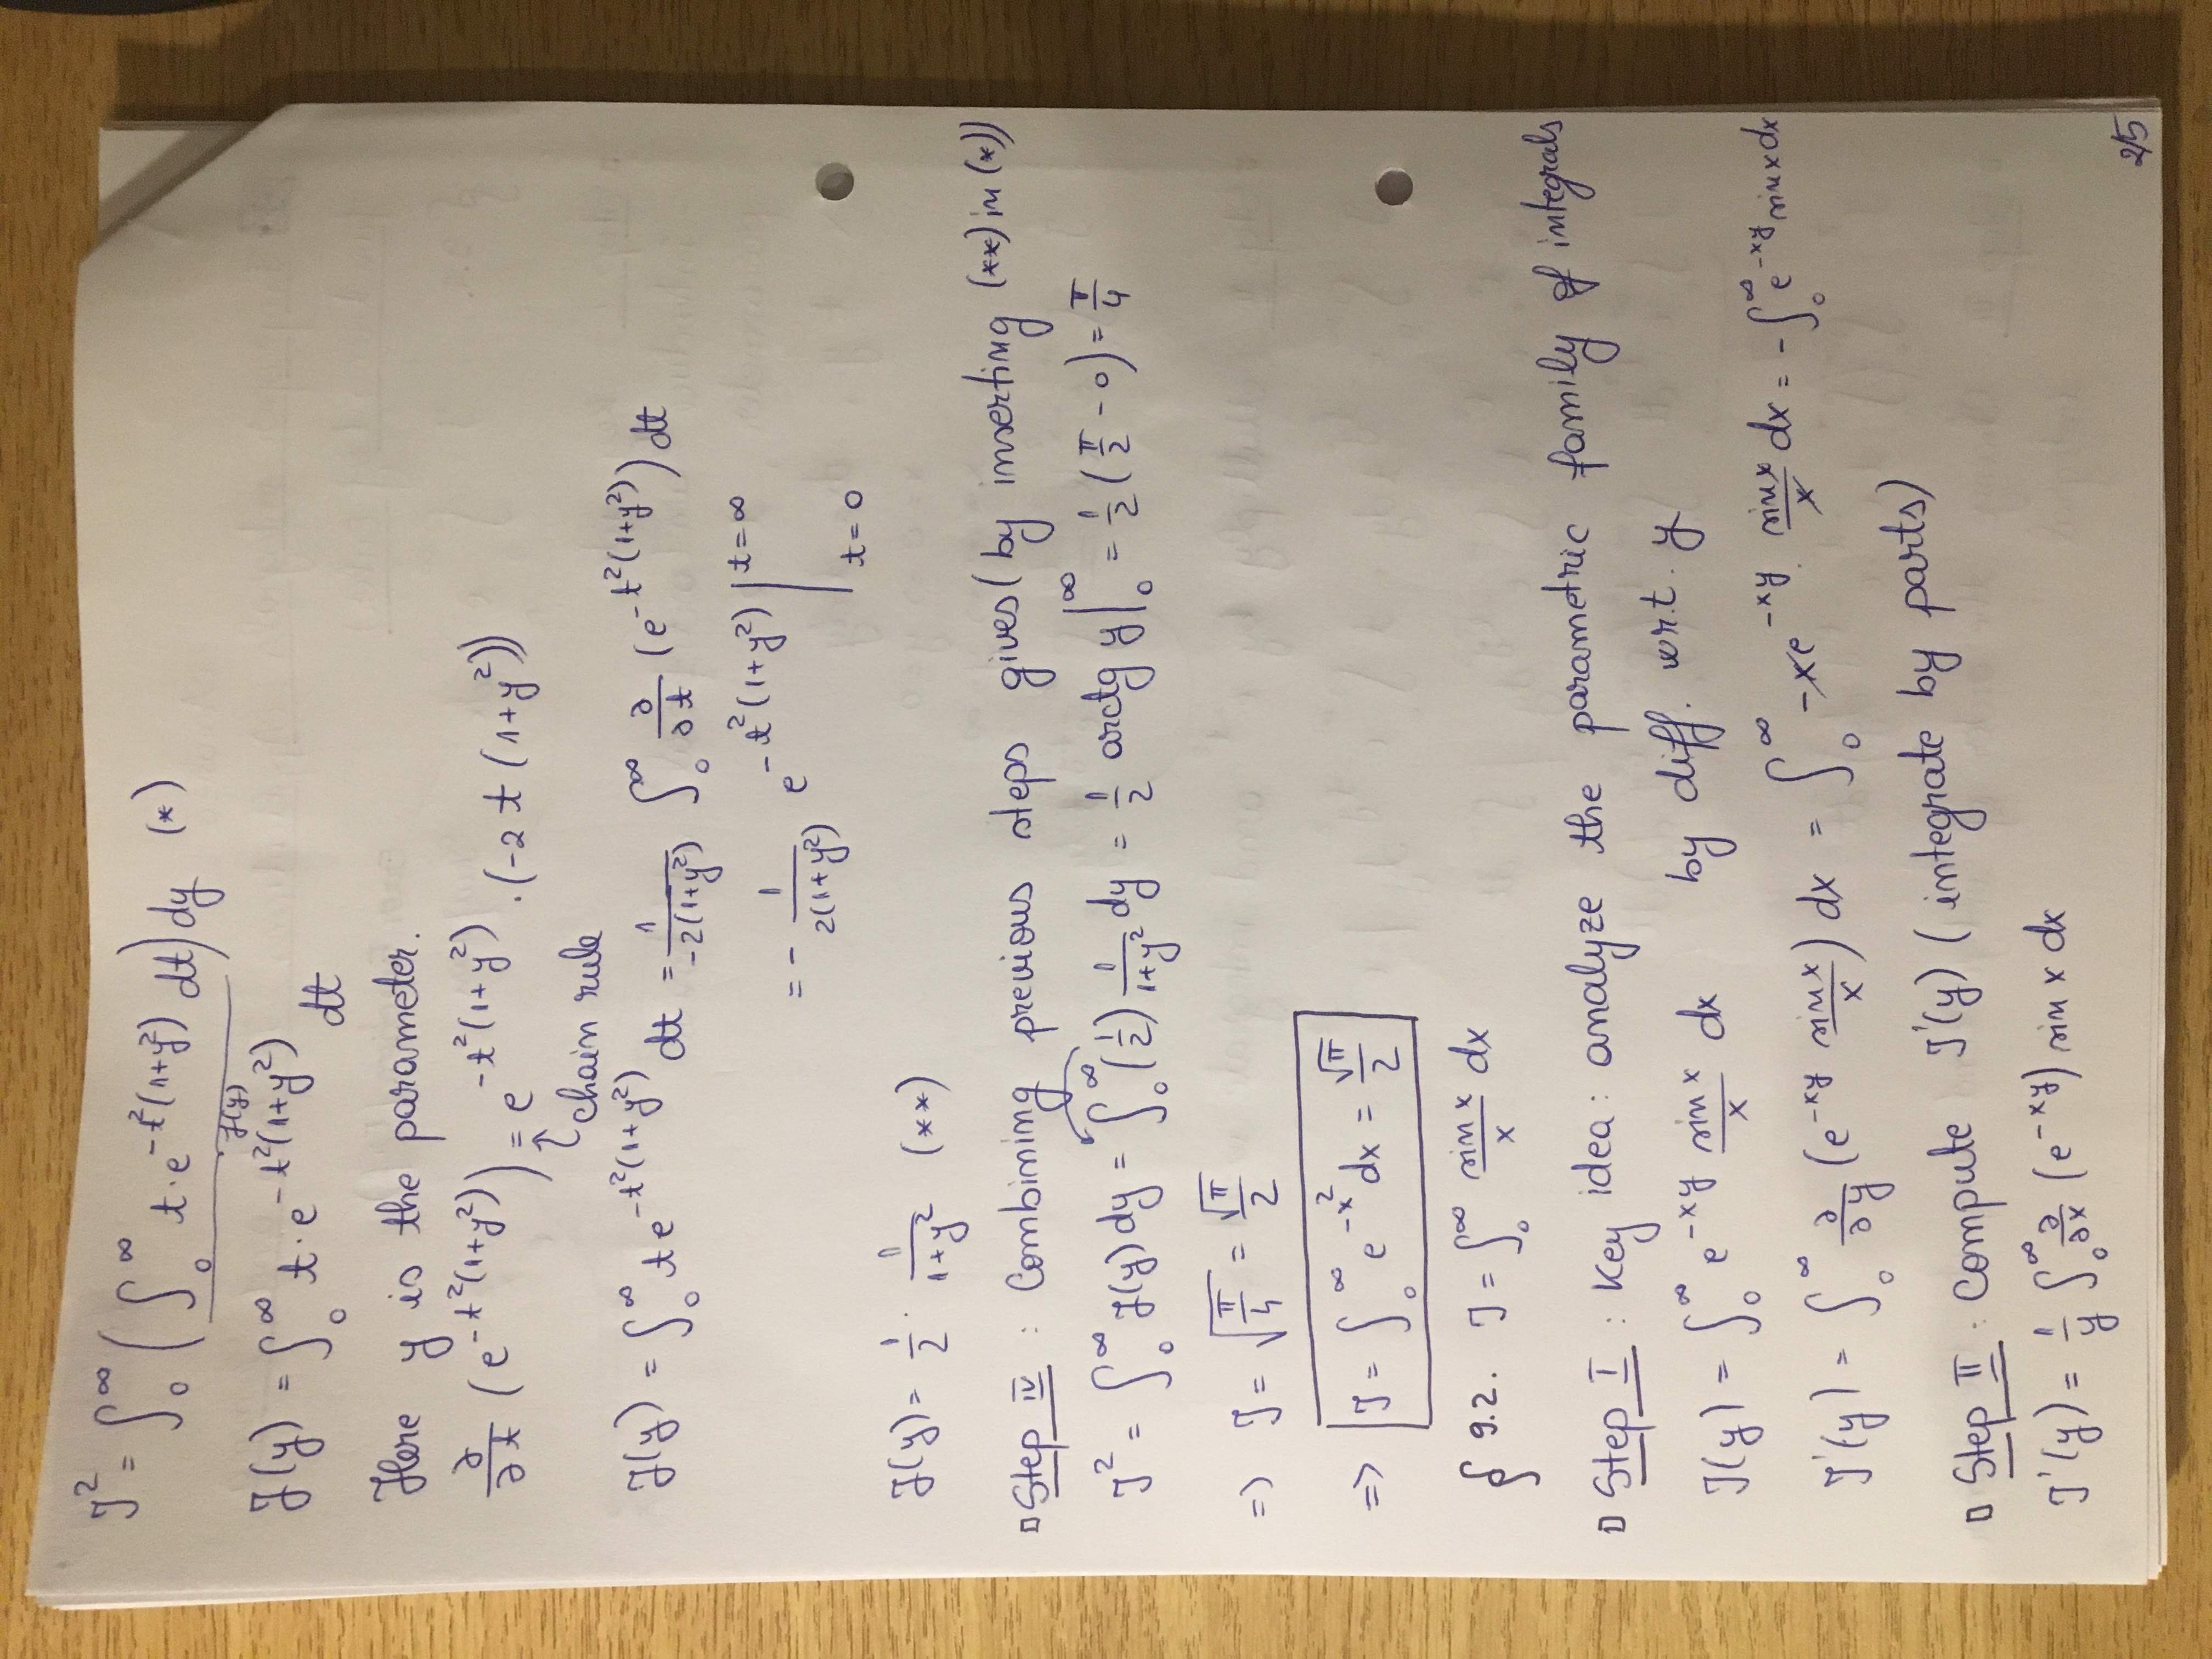 J² = ∫₀^∞ (∫₀^∞ t·e^{-t²(1+y²)} dt) dy (*)
J(y)
J(y) = ∫₀^∞ t·e^{-t²(1+y²)} dt
Here y is the parameter.
∂/∂t (e^{-t²(1+y²)}) = e^{-t²(1+y²)} · (-2t(1+y²))
chain rule
J(y) = ∫₀^∞ t e^{-t²(1+y²)} dt = 1/(-2(1+y²)) ∫₀^∞ ∂/∂t (e^{-t²(1+y²)}) dt
= - 1/(2(1+y²)) e^{-t²(1+y²)} |_{t=0}^{t=∞}
J(y) = 1/2 · 1/(1+y²) (**)
▯ Step IV : Combining previous steps gives (by inserting (**) in (*))
J² = ∫₀^∞ J(y) dy = ∫₀^∞ (1/2) 1/(1+y²) dy = 1/2 arctg y |₀^∞ = 1/2 (π/2 - 0) = π/4
=> J = √(π/4) = √π/2
=> J = ∫₀^∞ e^{-x²} dx = √π/2
§ 9.2. J = ∫₀^∞ sin x/x dx
▯ Step I : Key idea: analyze the parametric family of integrals
J(y) = ∫₀^∞ e^{-xy} sin x/x dx by diff. w.r.t. y
J'(y) = ∫₀^∞ ∂/∂y (e^{-xy} sin x/x) dx = ∫₀^∞ -x e^{-xy} · sin x/x dx = -∫₀^∞ e^{-xy} sin x dx
▯ Step II : Compute J'(y) (integrate by parts)
J'(y) = 1/y ∫₀^∞ ∂/∂x (e^{-xy}) sin x dx
2/5